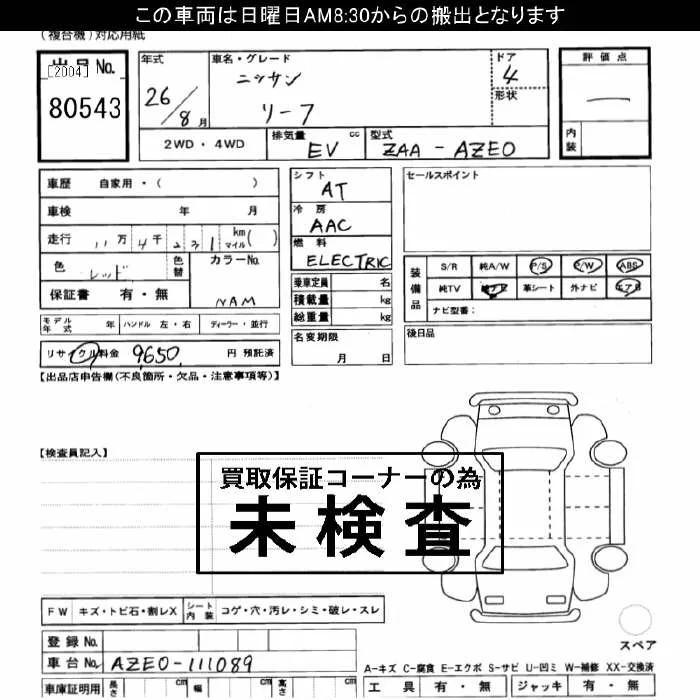 この車両は日曜日AM8:30からの搬出となります
(複合機)対応用紙
出品No.
[2004]
80543
年式
26/8月
車名・グレード
ニッサン
リーフ
ドア
4
形状
評価点
内装
2WD・4WD
排気量 cc
EV
型式
ZAA-AZE0
車歴 自家用・( )
車検 年 月
走行 11万4千231 km マイル( )
色 レッド 色替 カラーNo. NAM
保証書 有・無
シフト
AT
冷房
AAC
燃料
ELECTRIC
乗車定員 名
積載量 kg
総重量 kg
名変期限
月 日
セールスポイント
装備品
S/R 純A/W P/S P/W ABS
純TV 純ナビ 革シート 外ナビ エアB
ナビ型番:
後日品
モデル年式 年 ハンドル 左・右 ディーラー・並行
リサイクル料金 9650 円 預託済
【出品店申告欄(不良箇所・欠品・注意事項等)】
【検査員記入】
買取保証コーナーの為
未検査
FW キズ・トビ石・割レX シート内装 コゲ・穴・汚レ・シミ・破レ・スレ
登録No.
車台No. AZE0-111089
車庫証明用 長さ cm 幅 cm 高さ cm
スペア
A-キズ C-腐食 E-エクボ S-サビ U-凹ミ W-補修 XX-交換済
工具 有・無 ジャッキ 有・無